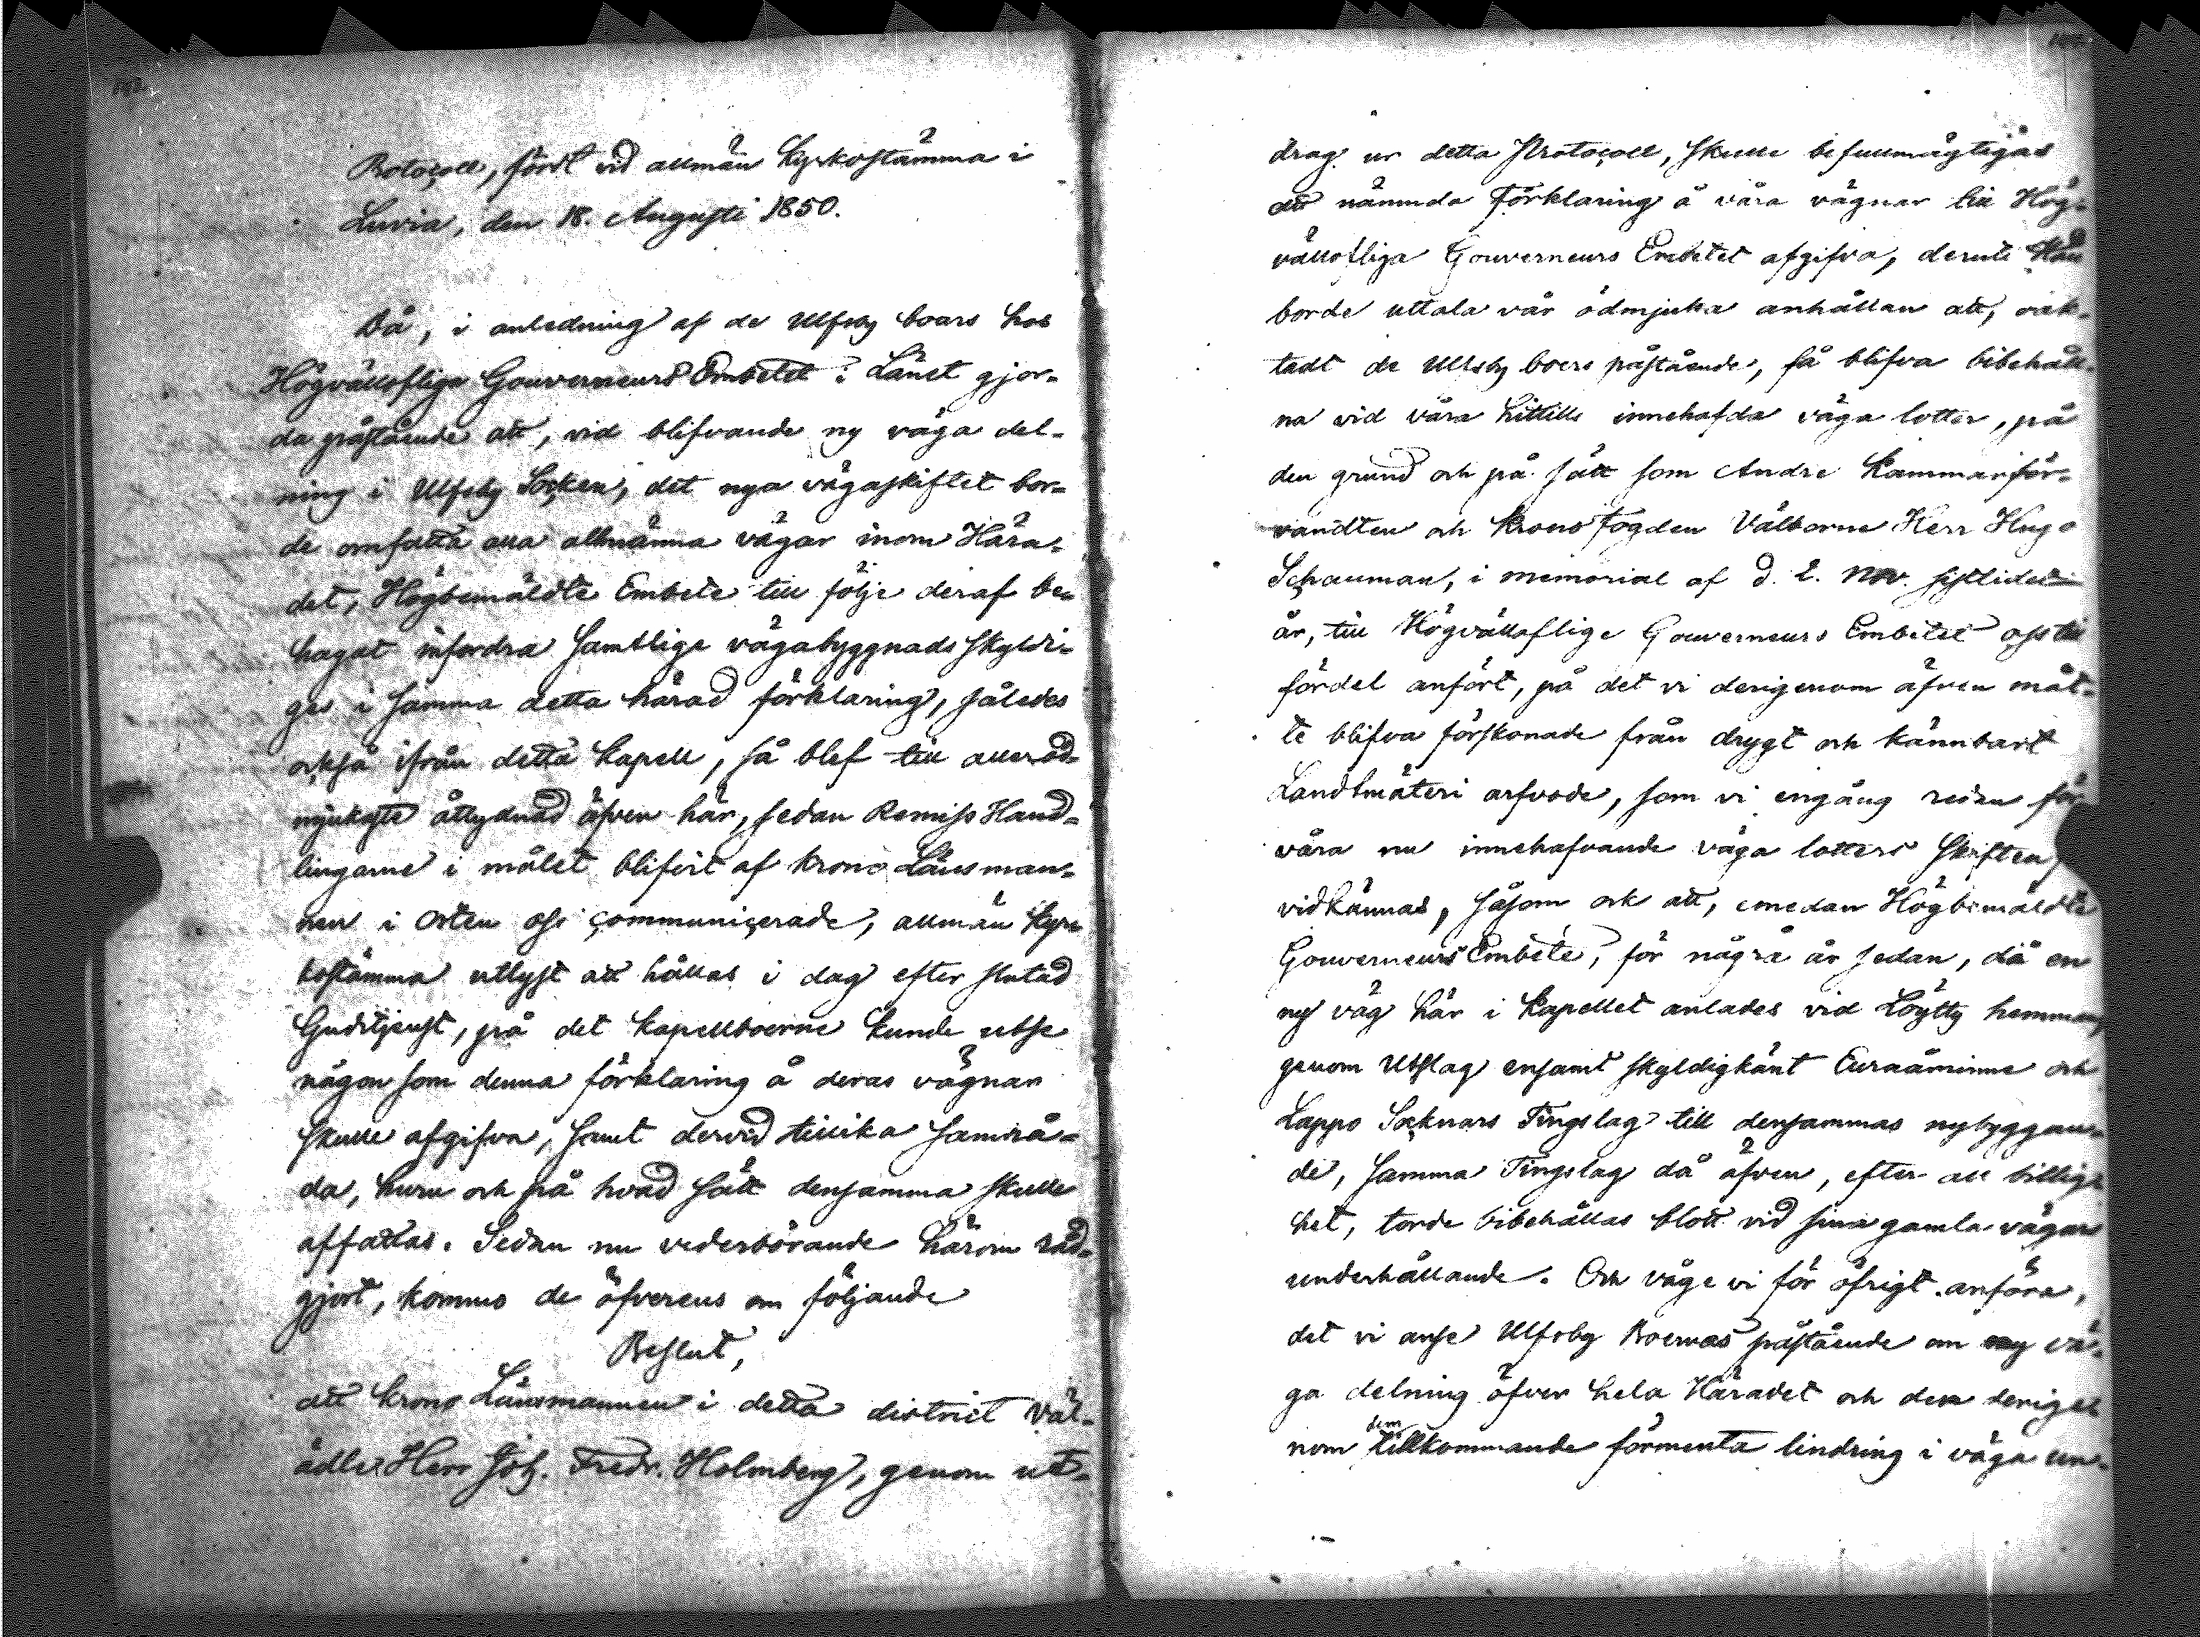 142.
Protocoll, fördt vid allmän Kyrkostämma i
Luvia, den 18. Augusti 1850.
Då, i anledning af de Ulfsby boars hos
Högvällofliga Gouverneurs Embetet i Länet gjor-
da påstående att, vid blifvande ny väga del-
ning i Ulfsby Socken, det nya vägaskiftet bor-
de omfatta alla allmänna vägar inom Hära-
det, Högbemäldte Embete till följe deraf be-
hagat infordra samtlige vägabyggnads skyldi-
ges i samma detta härad förklaring, således
också ifrån detta Kapell, så blef till allerød-
mjukaste åtlydnad äfven här, sedan Remiss Hand-
lingarne i målet blifvit af Krono Länsman-
nen i Orten oss communicerade, allmän Kyr-
kostämma utlyst att hållas i dag efter slutad
Gudstjenst, på det Kapellboerne kunde utse
någon som denna förklaring å deras vägnar
skulle afgifva, samt dervid tillika samrå-
da, huru och på hvad sätt densamma skulle
affattas. Sedan nu vederbörande härom råd-
gjort, kommo de öfverens om följande
Beslut,
att Krono Länsmannen i detta district Väl-
ädle Herr Joh. Fredr. Holmberg, genom ut-
drag ur detta Protocoll, skulle befullmägtigas
att nämnda förklaring å våra vägnar till Hög-
vällofliga Gouverneurs Embetet afgifva, deruti Han
borde uttala vår ödmjuka anhållan att, oak-
tadt de Ulfsby boers påstående, få blifva bibehåll-
na vid våra hittills innehafda väga lotter, på
den grund och på sätt som Andre Kammarför-
vandten och Kronofogden Välborne Herr Hugo
Schauman, i memorial af d. 2. Nov. sistlidet
år, till Högvällofliga Gouverneurs Embetet oss till
fördel anfört, på det vi derigenom äfven måt-
te blifva förskonade från drygt och kännbart
Landtmäteri arfvode, som vi engång redan för
våra nu innehafvande väga lotters skiften,
vidkännas, såsom ock att, emedan Högbemäldte
Gouverneurs Embete, för några år sedan, då en
ny väg här i Kapellet anlades vid Löytty hemman,
genom Utslag ensamt skyldigkänt Euraåminne och
Lappo Socknars Tingslag till densammas nybyggan-
de, samma Tingslag då äfven, efter all billig-
het, torde bibehållas blott vid sina gamla vägars
underhållande. Och våge vi för öfrigt anföra,
det vi anse Ulfsby Boernas påstående om ny vä-
ga delning öfver hela Häradet och den derige-
nom dem tillkommande förmenta lindring i väga un-